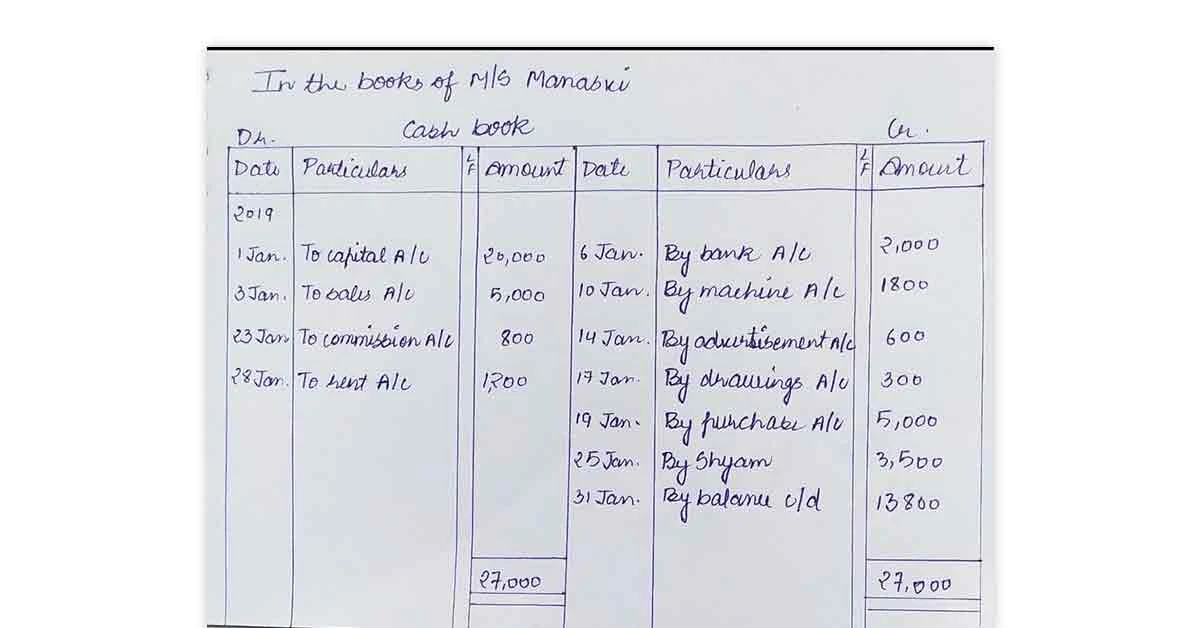 In the books of M/S Manaswi
Cash book
Dr. Cr.
Date Particulars LF Amount Date Particulars LF Amount
2019
1 Jan. To capital A/c 20,000 6 Jan. By bank A/c 2,000
3 Jan. To sales A/c 5,000 10 Jan. By machine A/c 1800
23 Jan To commission A/c 800 14 Jan. By advertisement A/c 600
28 Jan. To rent A/c 1,200 17 Jan. By drawings A/c 300
19 Jan. By purchase A/c 5,000
25 Jan. By Shyam 3,500
31 Jan. By balance c/d 13800
27,000 27,000